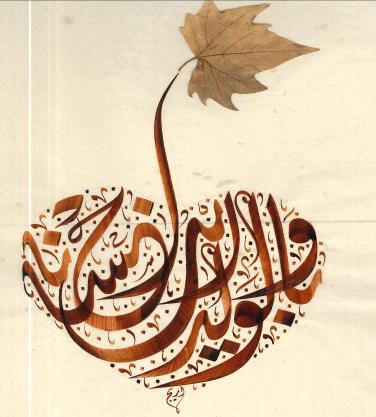 وبالوالدين إحسانا